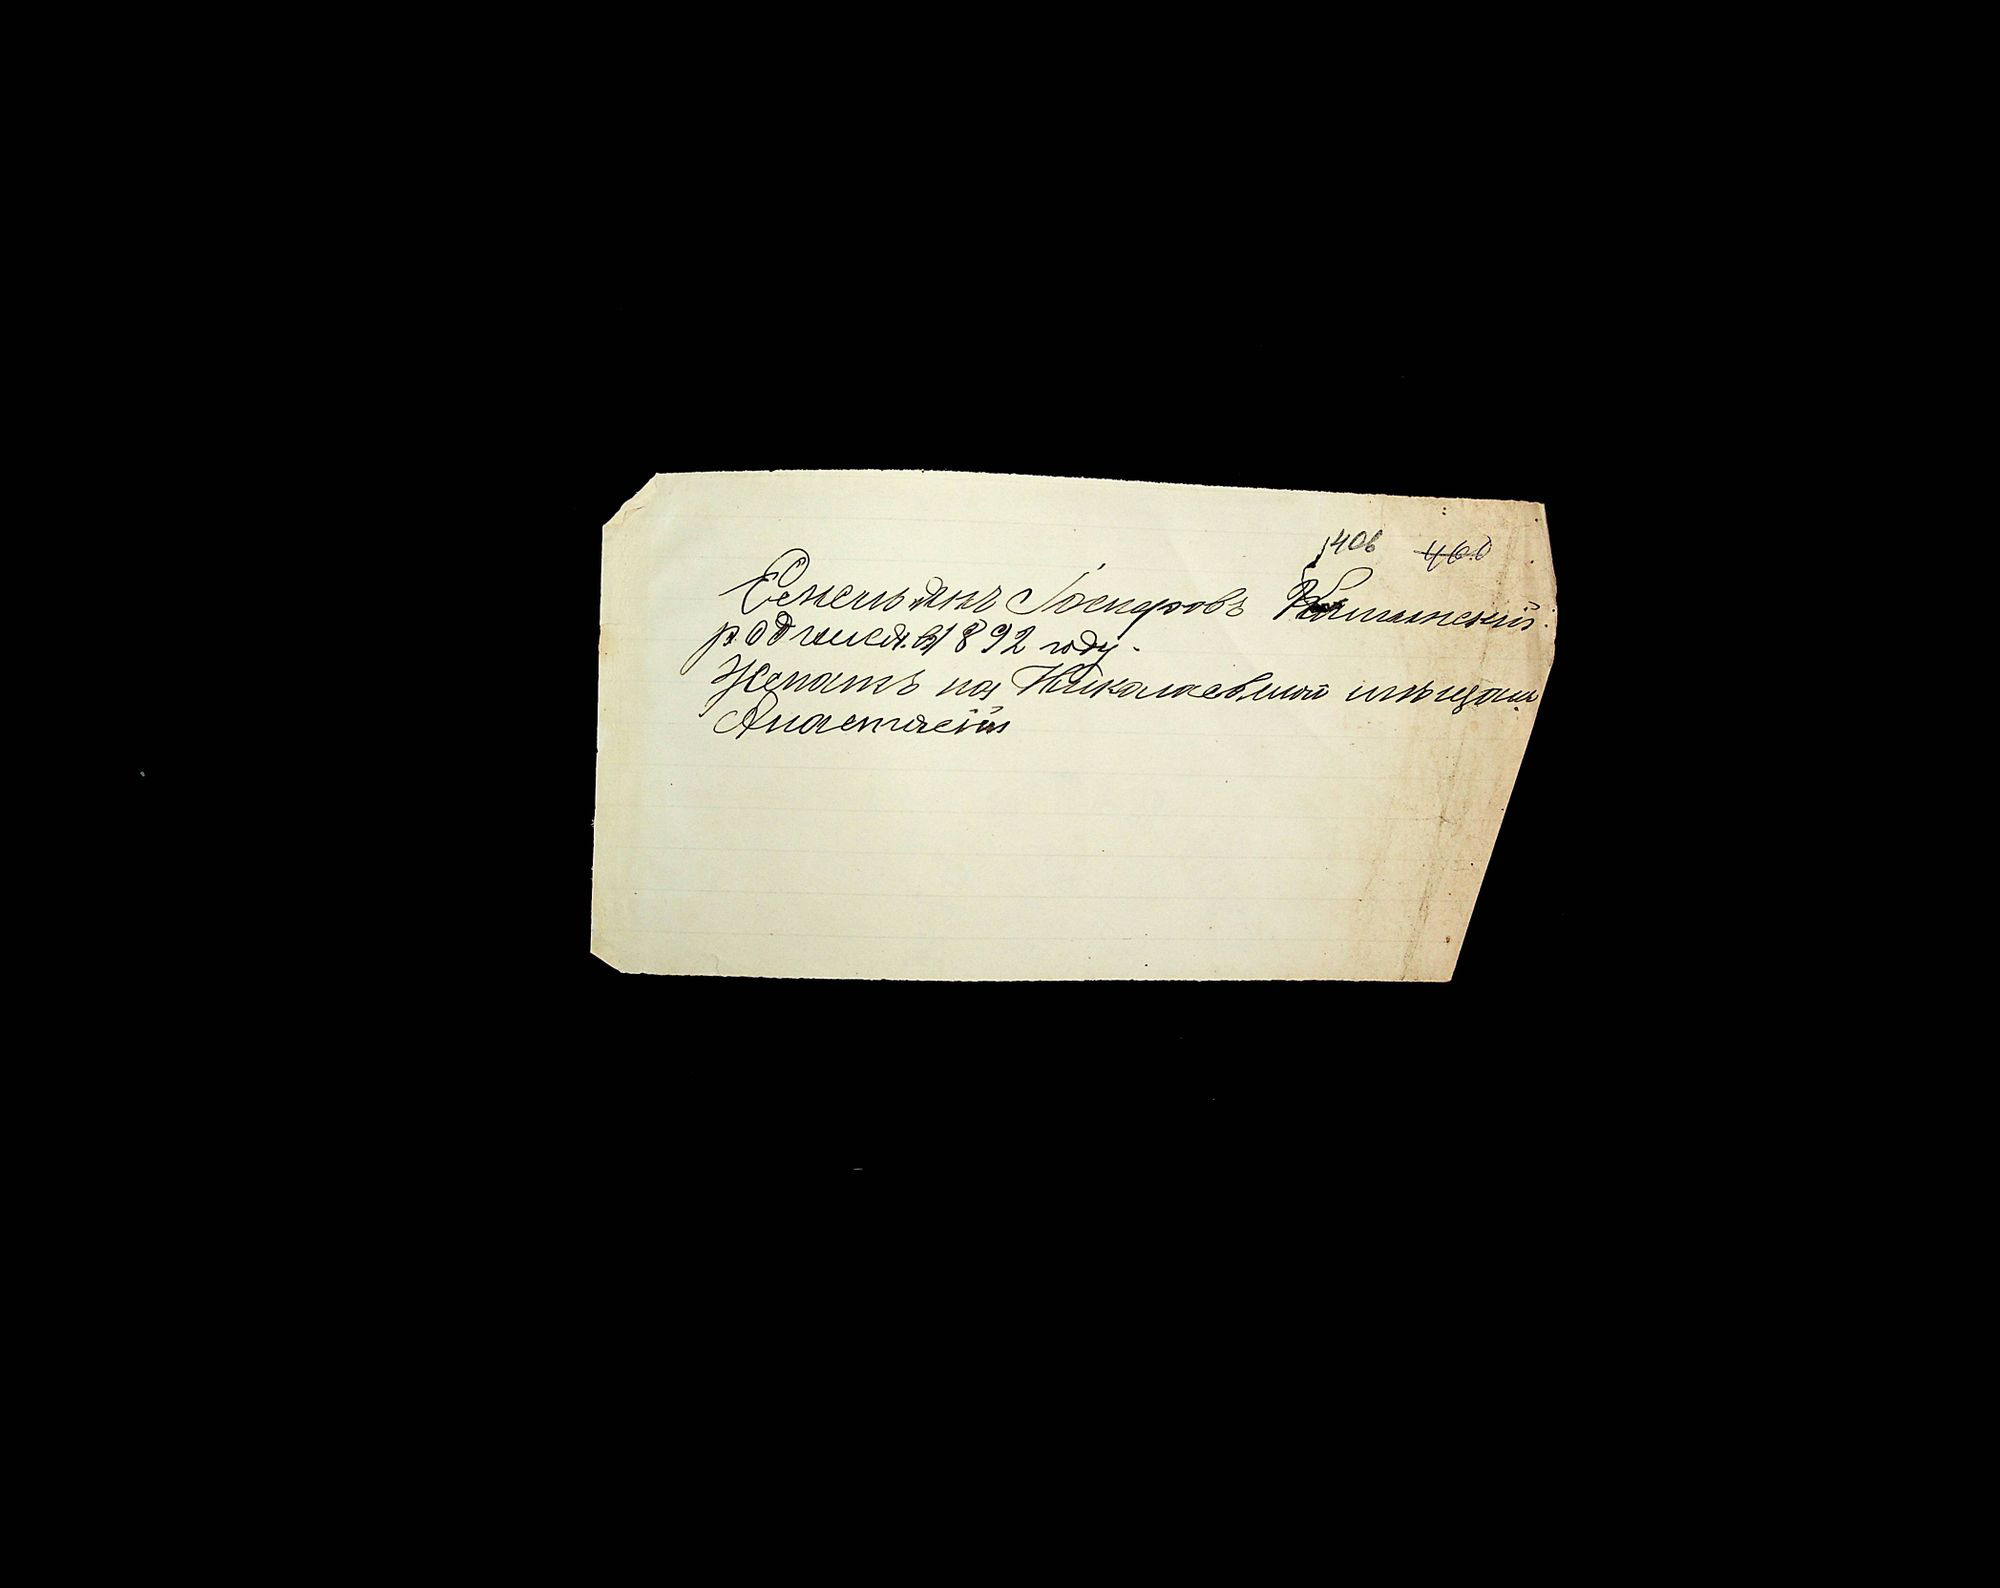 406 400
Емельянъ Гаспаровъ Калинскій
родился въ 1892 году.
Женатъ на Николаевской мѣщан.
Анастасіи